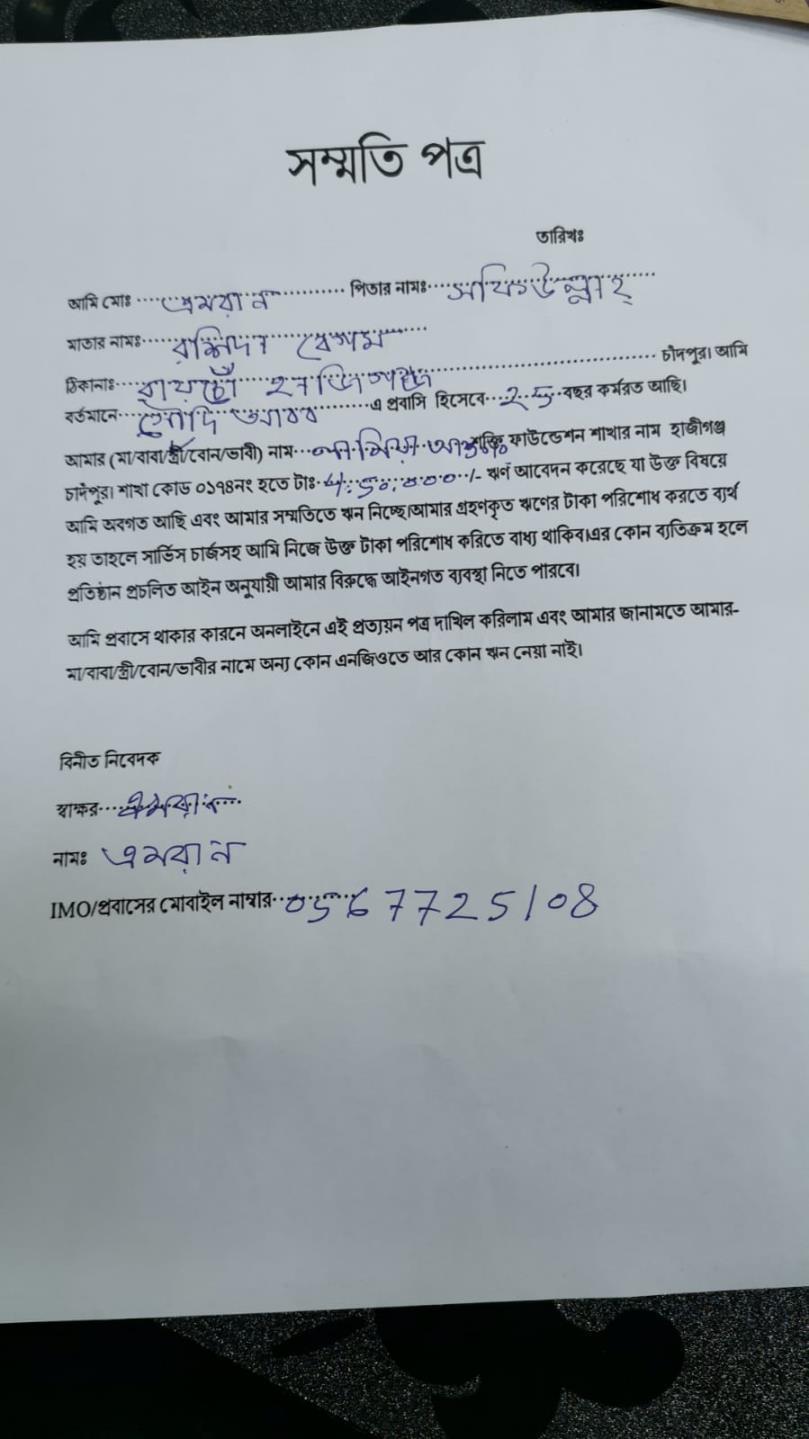 সম্মতি পত্র
তারিখঃ
আমি মোঃ এমরান পিতার নামঃ সফিউল্লাহ্
মাতার নামঃ রশিদা বেগম
ঠিকানাঃ রায়চোঁ চাঁদপুর। আমি
বর্তমানে সৌদি এ প্রবাসি হিসেবে ২৫ বছর কর্মরত আছি।
আমার (মা/বাবা/স্ত্রী/বোন/ভাবী) নাম শক্তি ফাউন্ডেশন শাখার নাম হাজীগঞ্জ
চাঁদপুর। শাখা কোড ০১৭৪নং হতে টাঃ /- ঋণ আবেদন করেছে যা উক্ত বিষয়ে
আমি অবগত আছি এবং আমার সম্মতিতে ঋন নিচ্ছে।আমার গ্রহণকৃত ঋণের টাকা পরিশোধ করতে ব্যর্থ
হয় তাহলে সার্ভিস চার্জসহ আমি নিজে উক্ত টাকা পরিশোধ করিতে বাধ্য থাকিব।এর কোন ব্যতিক্রম হলে
প্রতিষ্ঠান প্রচলিত আইন অনুযায়ী আমার বিরুদ্ধে আইনগত ব্যবস্থা নিতে পারবে।
আমি প্রবাসে থাকার কারনে অনলাইনে এই প্রত্যয়ন পত্র দাখিল করিলাম এবং আমার জানামতে আমার-
মা/বাবা/স্ত্রী/বোন/ভাবীর নামে অন্য কোন এনজিওতে আর কোন ঋন নেয়া নাই।
বিনীত নিবেদক
স্বাক্ষর এমরান
নামঃ এমরান
IMO/প্রবাসের মোবাইল নাম্বার 0567725108